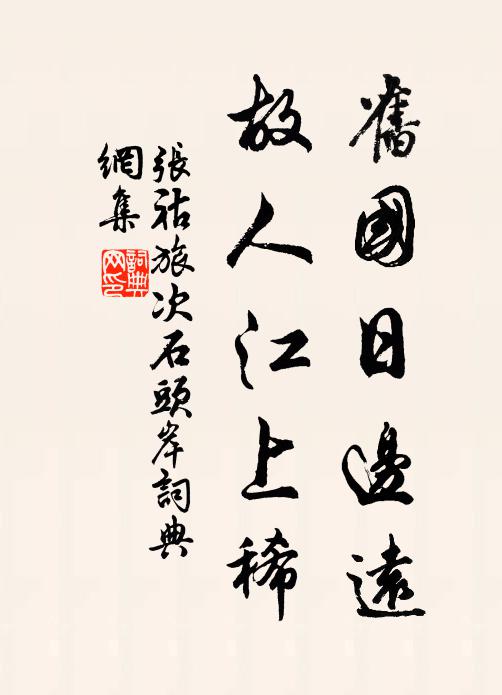 舊國日邊遠
故人江上稀
張祜旅次石頭岸詞典
網集
詞典
网印